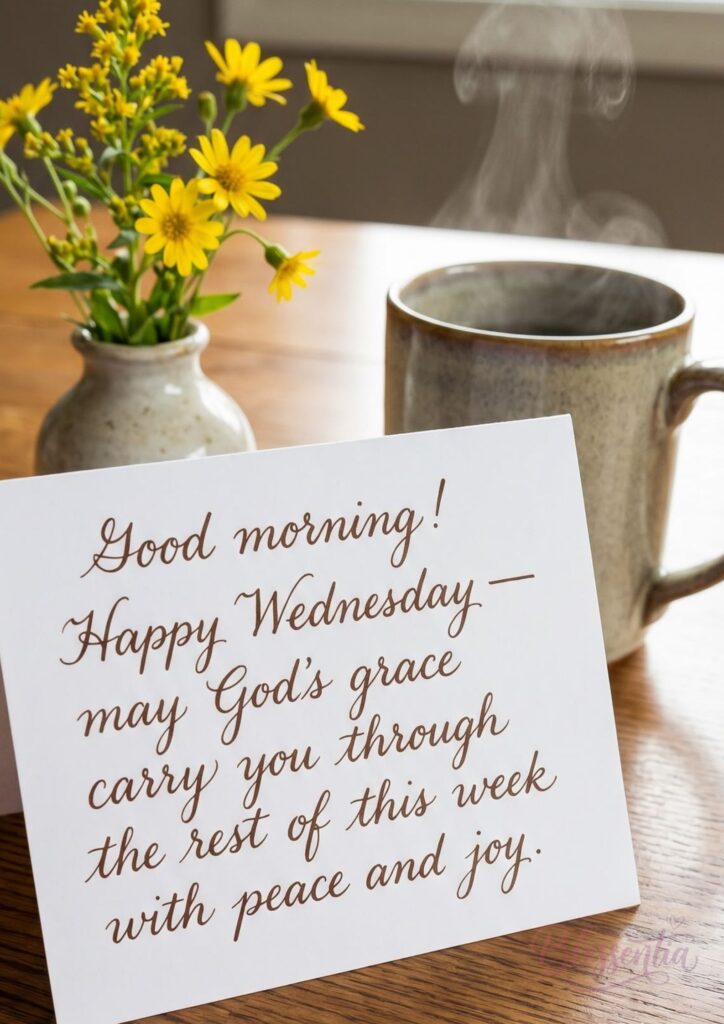 Good morning!
Happy Wednesday —
may God's grace
carry you through
the rest of this week
with peace and joy.